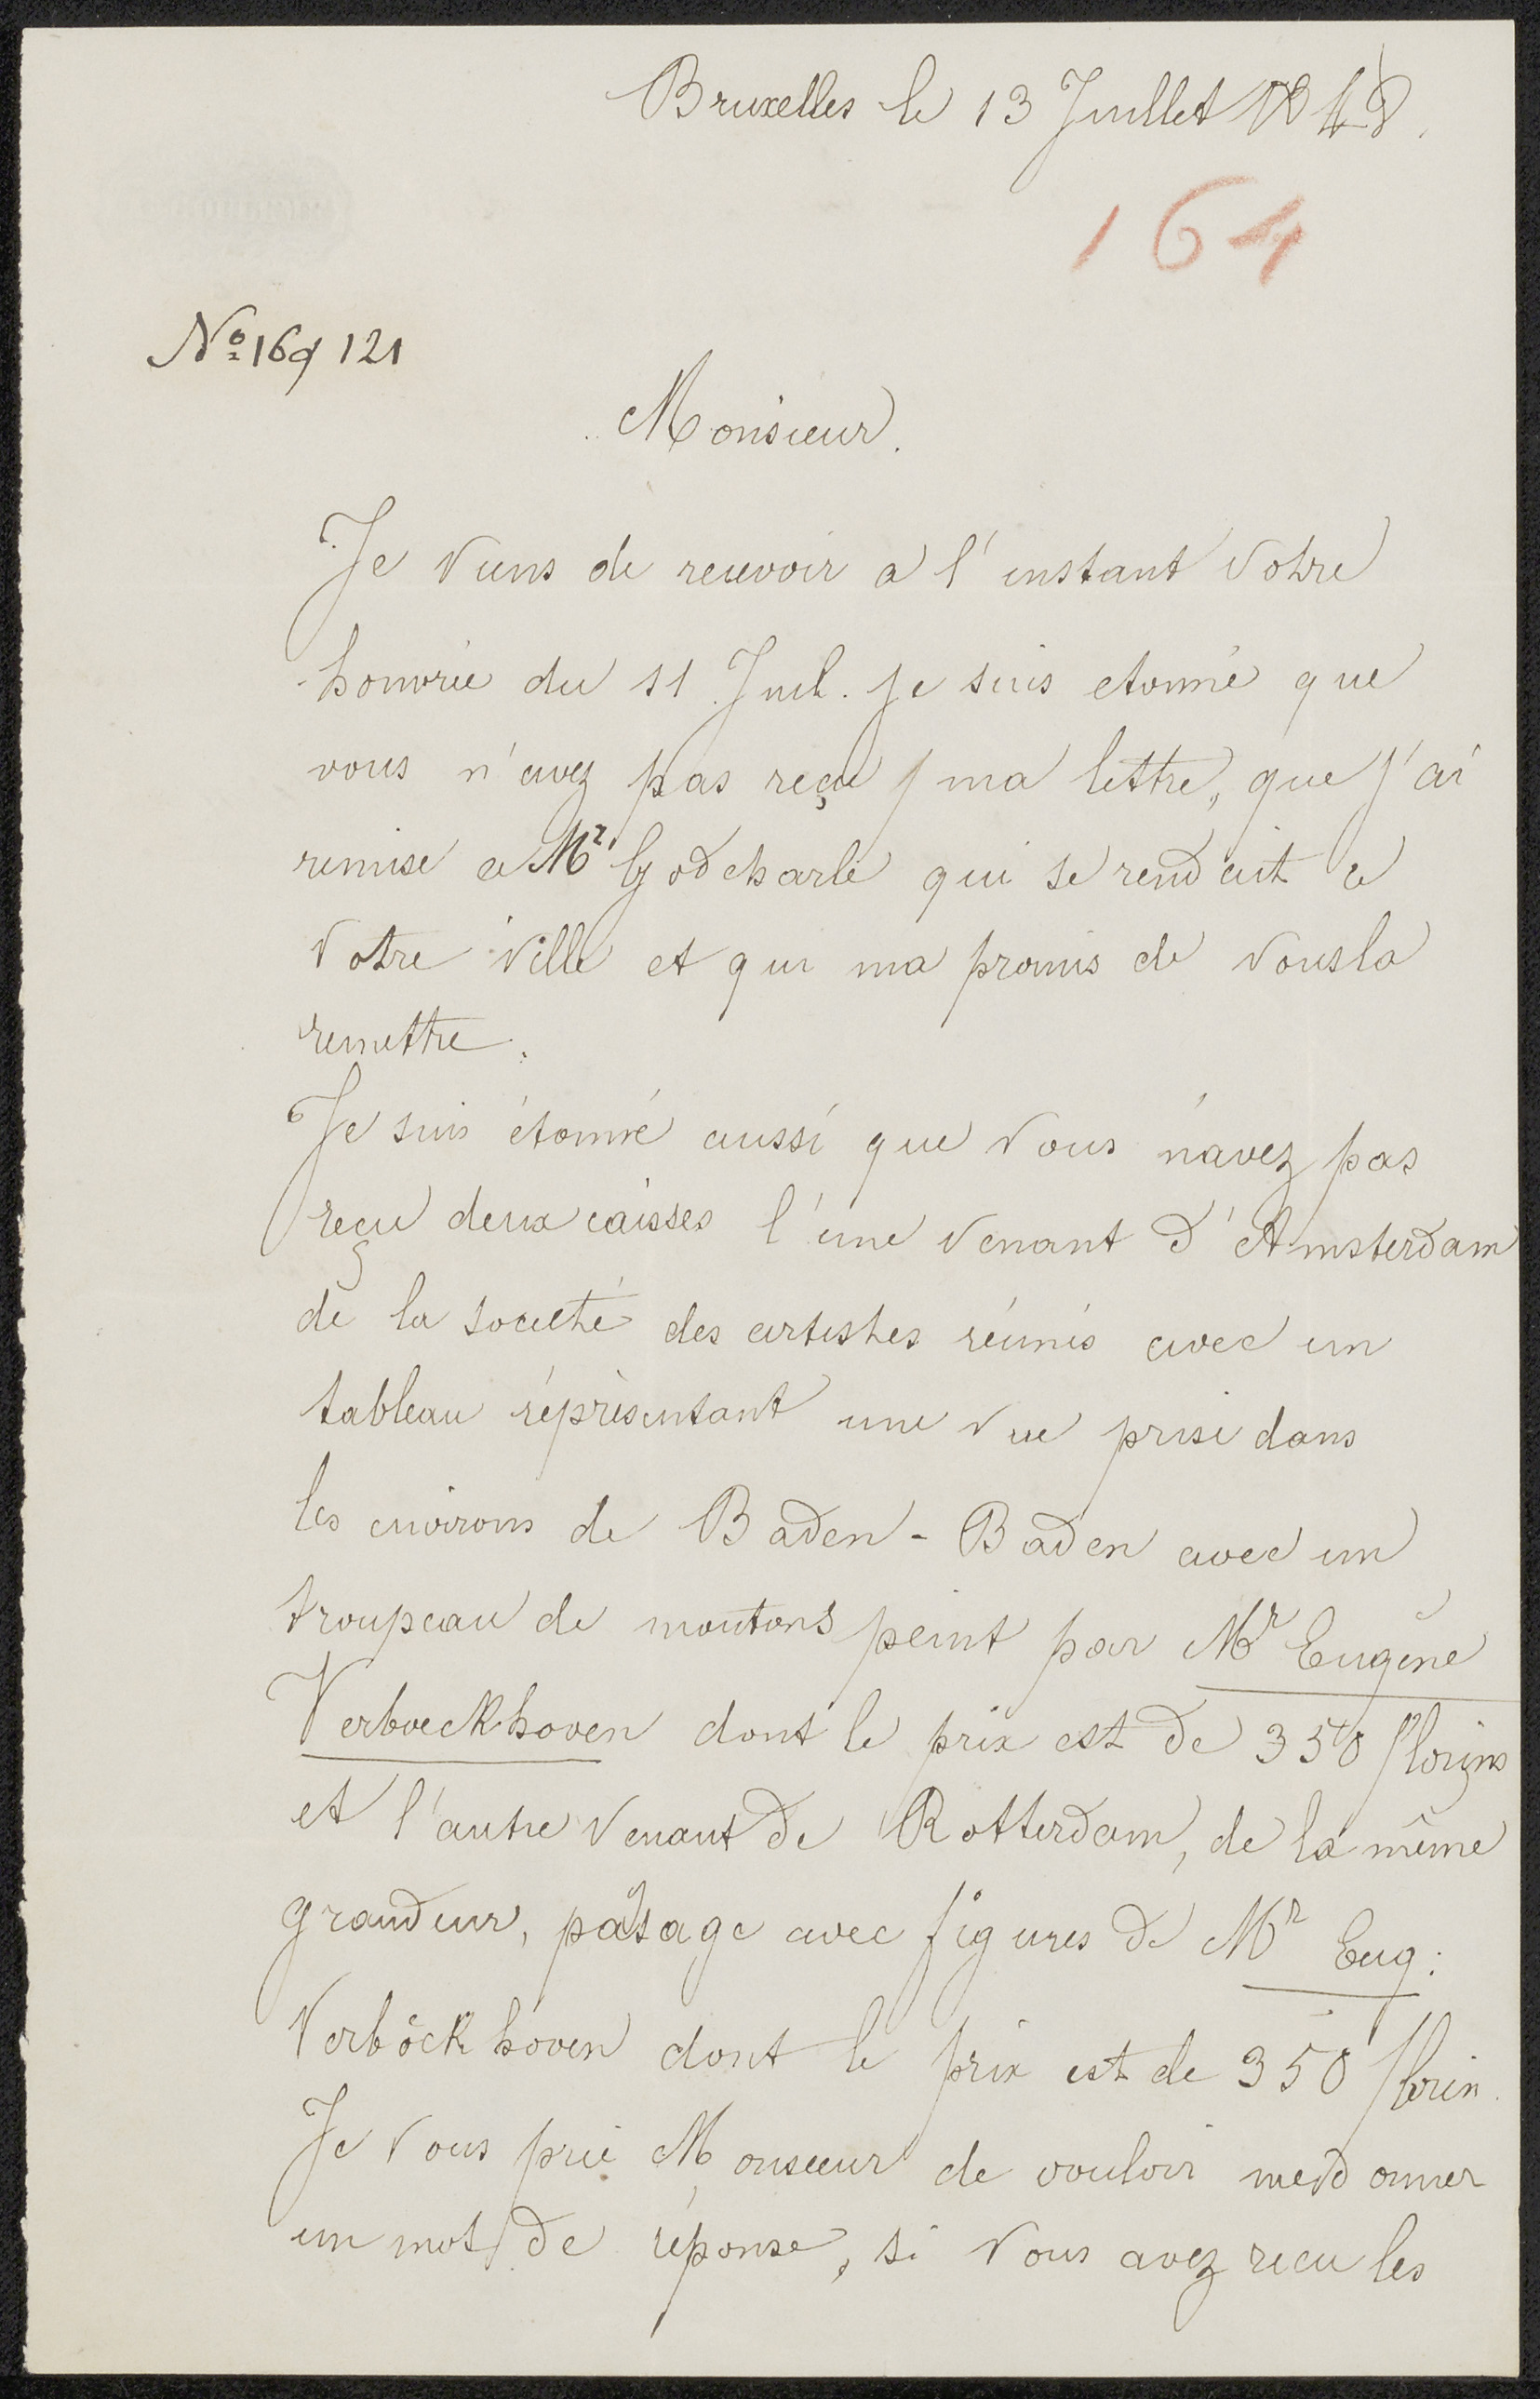 Bruxelles le 13 Juillet 1848.
164
Nº 169 121
Monsieur.
Je viens de recevoir a l'instant votre
honorée du 11 Juil. je suis etonné que
vous n'avez pas reçu ma lettre, que j'ai
remise a Mr Godcharle qui se rendait a
votre ville et qui ma promis de vous la
remettre.
Je suis étonné aussi que vous n'avez pas
reçu deux caisses l'une venant d'Amsterdam
de la societé des artistes réunis avec un
tableau réprèsentant une vue prise dans
les environs de Baden-Baden avec un
troupeau de moutons peint par Mr Eugène
Verboeckhoven dont le prix est de 350 florins
et l'autre venant de Rotterdam, de la même
grandeur, paÿsage avec figures de Mr Eug:
Verböckhoven dont le prix est de 350 florin.
Je vous prie Monsieur de vouloir me donner
un mot de réponse, si vous avez recu les